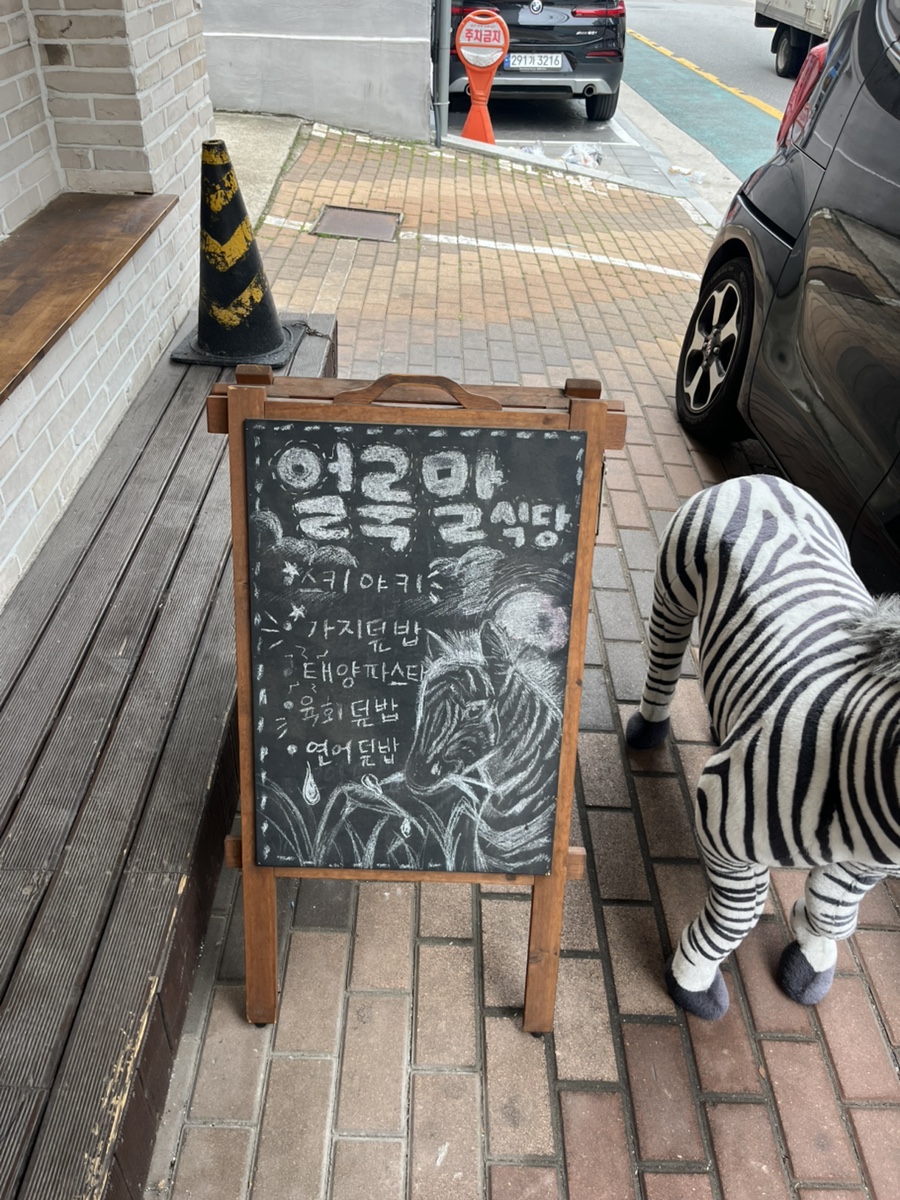 주차금지
291가 3216
얼룩말식당
스키야키
가지덮밥
태양파스타
육회덮밥
연어덮밥